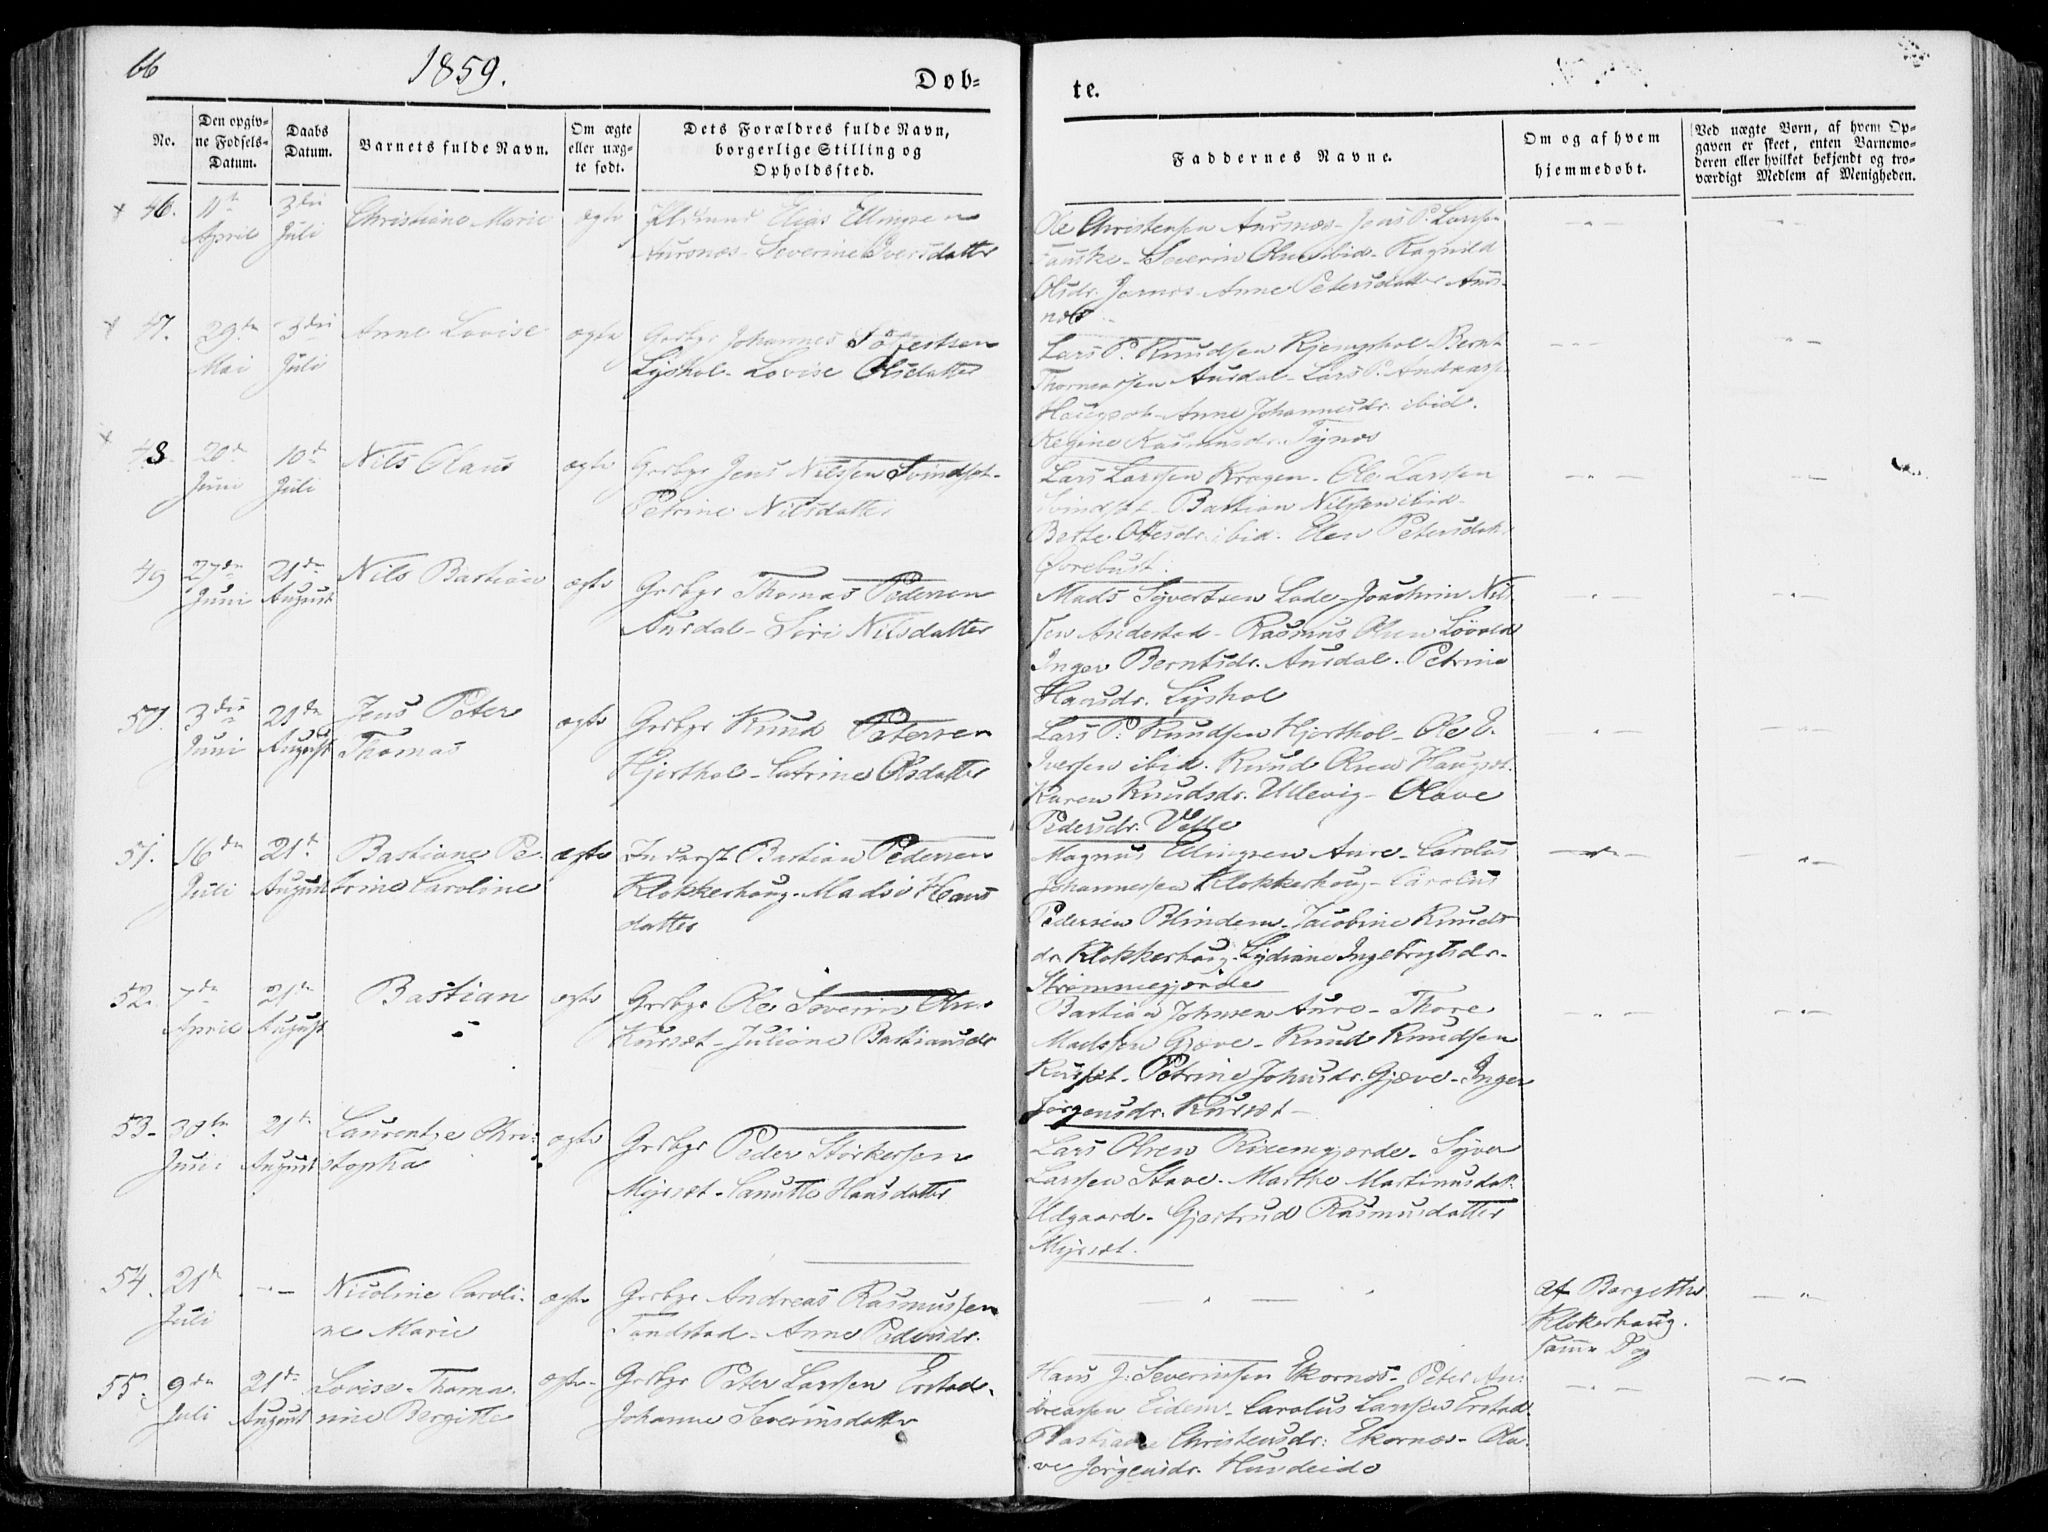 66
1859.
Døb-
te.
No.
Den opgiv-
ne Fødsels-
Datum.
Daabs
Datum.
Barnets fulde Navn.
Om ægte
eller uæg-
te født.
Dets Forældres fulde Navn,
borgerlige Stilling og
Opholdssted.
Faddernes Navne.
Om og af hvem
hjemmedøbt.
Ved uægte Børn, af hvem Op-
gaven er skeet, enten Barnemo-
deren eller hvilket bekjendt og tro-
værdigt Medlem af Menigheden.
46.
11te
April
3die
Juli
Christiane Marie
ægte
Elias Ellingsen
Aursnæs - Severine Iversdatter
Ole Christensen Aursnæs - Jens P. Larssen
Fauske - Severin Olsen ibid - Ragnild
Olsdr. Jarnes - Anne Petersdatter Aurs-
næs
47.
29de
Mai
3die
Juli
Anne Lovise
ægte
Grdbgr Johannes
Lyshol - Lovise Olsdatter
Lars P. Knudsen - Bernt
Ausdal - Lars P. Andreass.
Haugset - Anne Johannesdr. ibid.
Regine Rasmusdr. Tynæs
48
20de
Juni
10de
Juli
Nils Olaus
ægte
Grdbgr Jens Nilssen Svindset -
Petrine Nilsdatter
Lars Larssen Kragen - Ole Larssen
Svindset - Bastian Nilssen ibid -
ibid. Elen Petersdatr
Ørebust.
49
27de
Juni
21de
August
Nils Bastian
ægte
Grdbgr Thomas Pedersen
Ausdal - Siri Nilsdatter
Mads Syvertsen Lade - Joachim Nil-
sen Andestad - Rasmus Olsen
Inger Berntsdr. Ausdal - Petrine
Hansdr. Lyshol
50.
3die
Juni
21de
August
Jens Peter
Thomas
ægte
Grdbgr Knud Petersen
Hjorthol - Catrine Olsdatter
Lars P. Knudsen Hjorthol - Ole E.
Iversen ibid. Knud Olsen Haugset.
Karen Knudsdr. Ullevig - Olave
Pedersdr. Velle
51.
16de
Juli
21de
August
Bastiane Pe-
trine Caroline
ægte
Inderst Bastian Pedersen
Klokkerhoug - Madsi Hans
datter
Magnus Ellingsen Aure - Carolus
Johannessen Klokkerhoug - Carolus
Pedersen Blindem - Jacobine Knuds
dr. Klokkerhoug - Lydiane Ingebrigtsdr.
Strømmegjerde
52.
7de
April
21de
August
Bastian
ægte
Grdbgr Ole Severin Olsen
Kurset - Juliane Bastiansdr
Bastian Johnsen Aure - Thore
Madssen Gjæve - Knud Knudsen
Kurset - Petrine Johnsdr. Gjæve - Inger
Jørgensdr. Kurset -
53.
30te
Juni
21de
August
Laurentze Chri-
stopha
ægte
Grdbgr Peder Størkersen
Myrset - Canutte Hansdatter
Lars Olsen Riksemgjærde - Syver
Larssen Stave. Marthe Martinusdatr
Udgaard - Gjertrud Rasmusdatter
Myrset.
54.
21de
Juli
Nicoline Caroli-
ne Marie
ægte
Grdbgr Andreas Rasmussen
Tandstad - Anne Pedersdr.
af Bergethe
Klokerhaug.
samme Dag
55.
9de
Juli
21de
August
Lovise Thoma-
sine Bergitte
ægte
Grdbgr Peter Larssen Erstad -
Johanne Severinsdatter
Hans J. Severinsen Ekornæs - Peter An-
dreassen Eidem - Carolus Larssen Erstad
Bastiane Christensdr. Ekornæs - Ola-
ve Jørgensdr. Hundeide